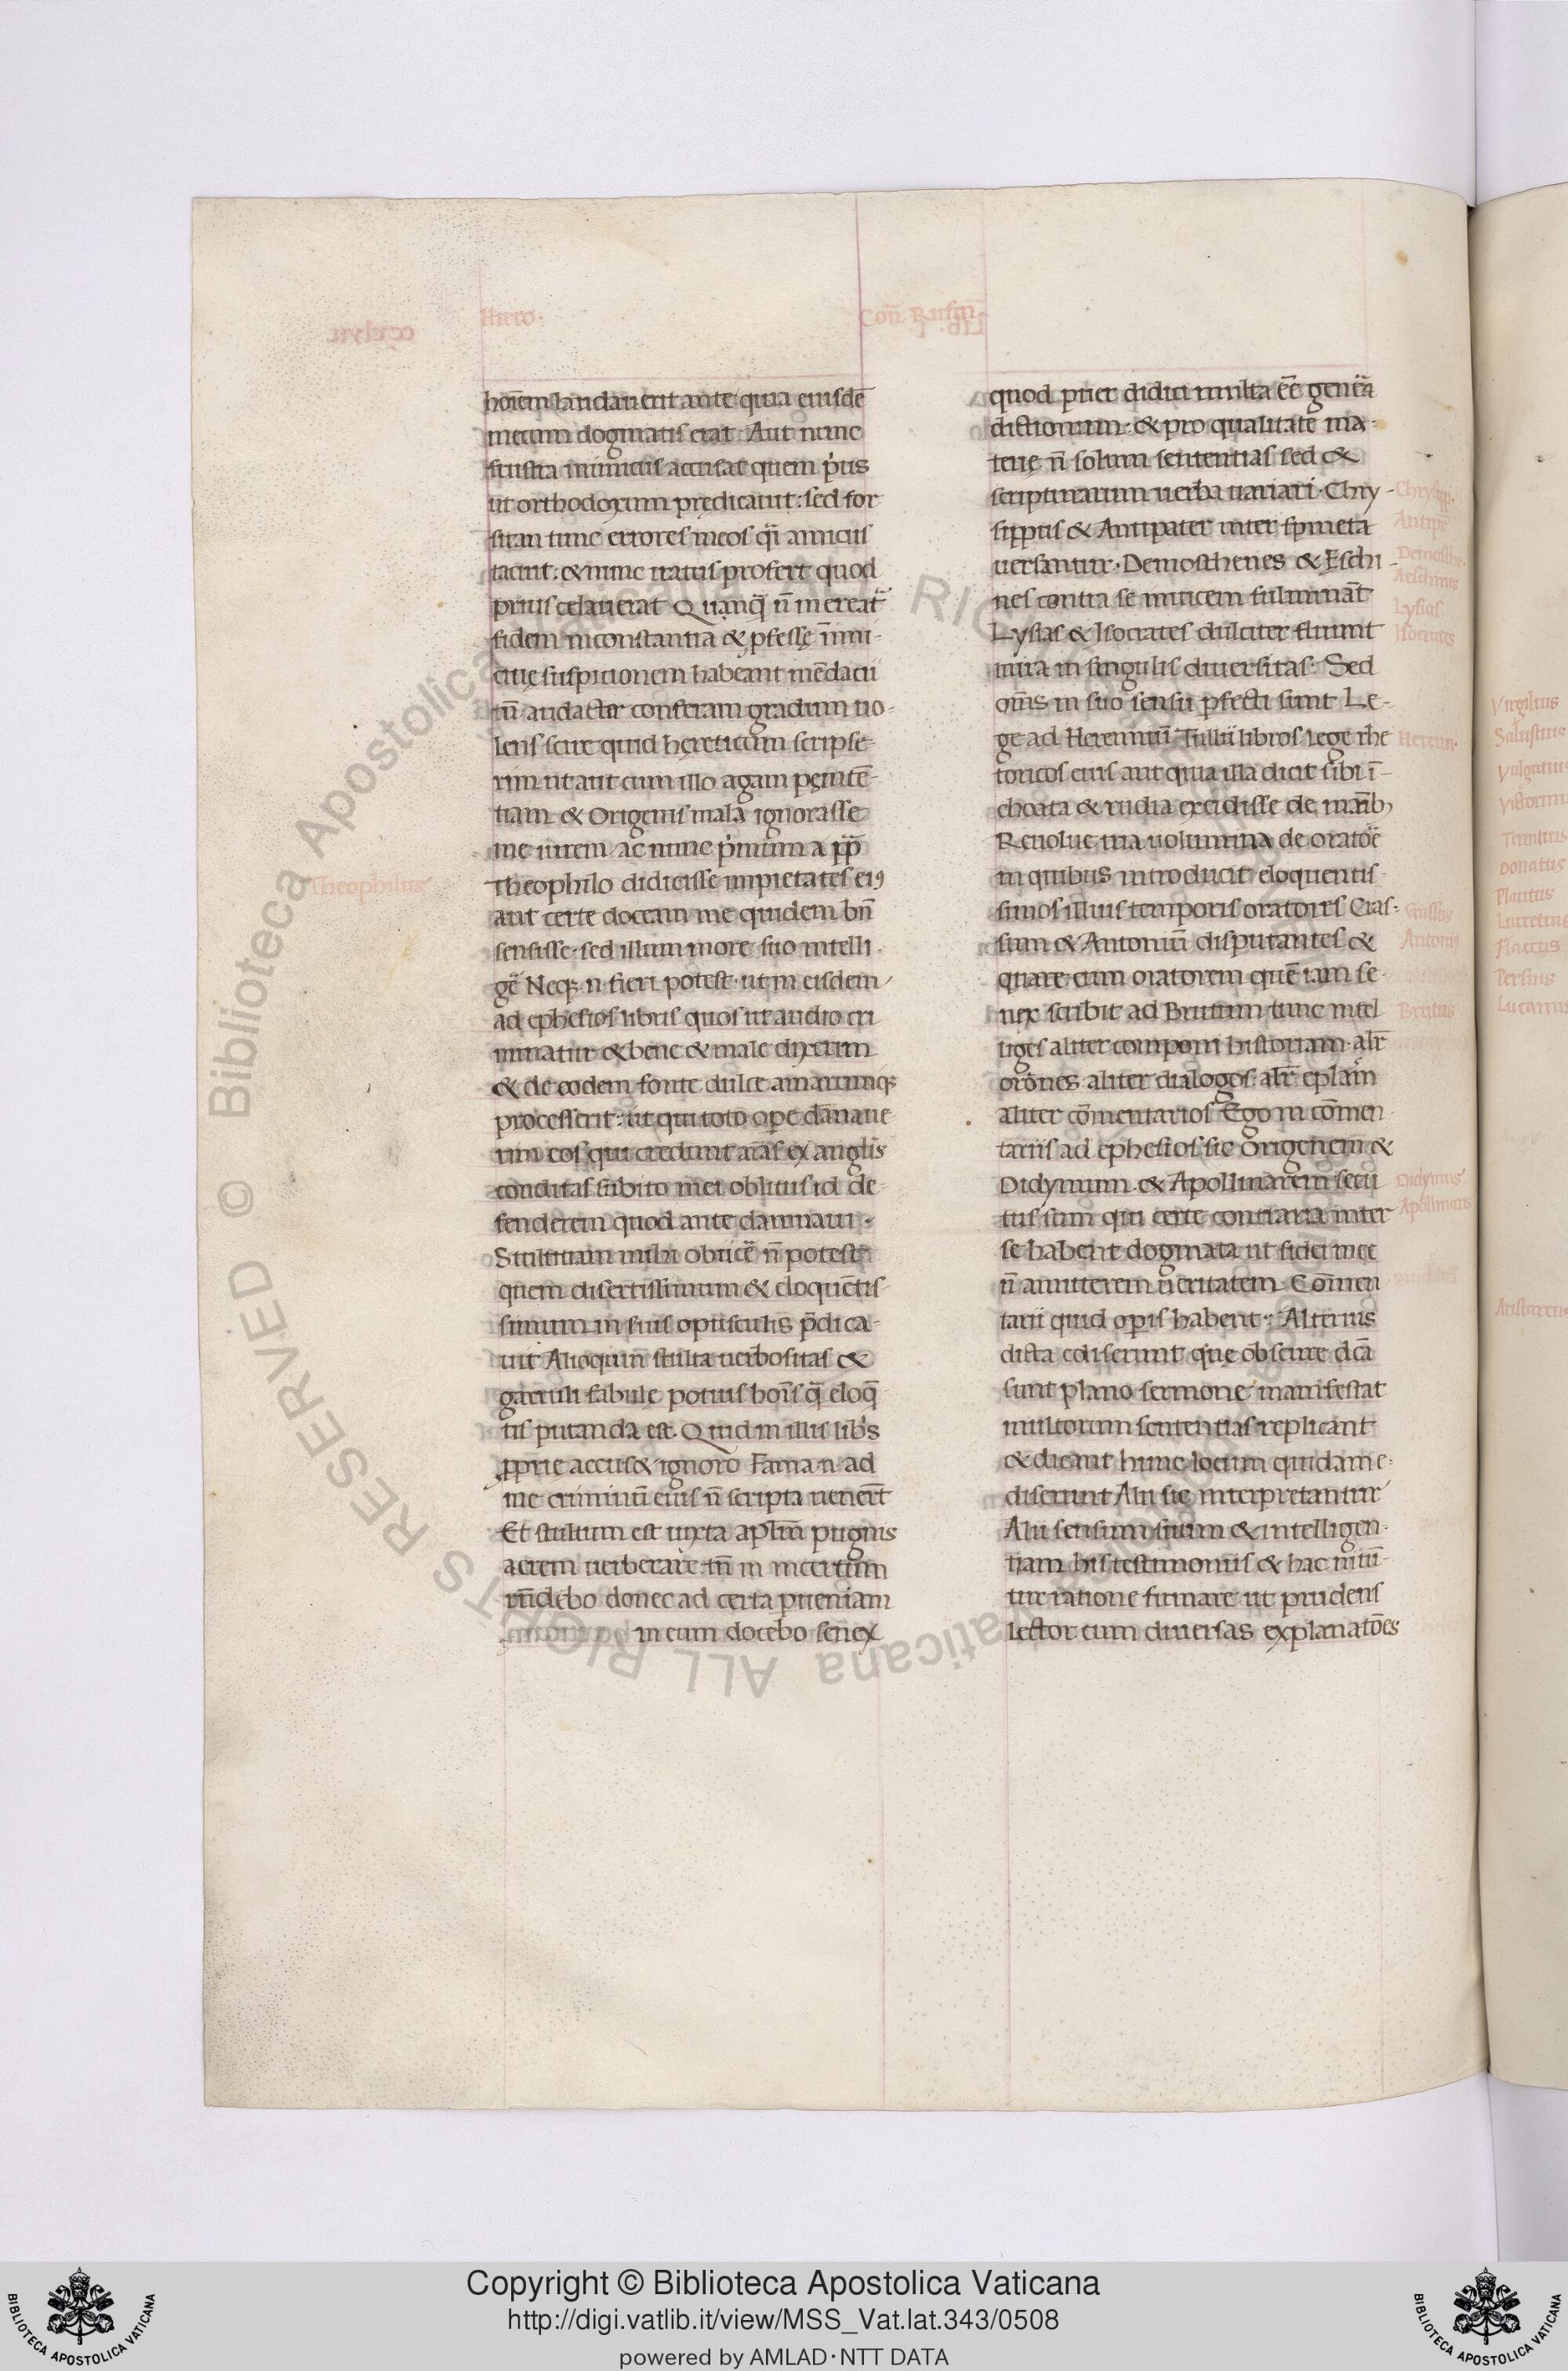 Hiero·
Con̄ Rufin̄ Lib. I.
hoīem laudauerit ante quia eiusdē
mecum dogmatis erat· Aut nunc
frustra inimicus accusat quem p̓us
ut orthodoxum prędicauit: sed for
sitan tunc errores meos q̄i amicus
tacuit: & nunc iratus profert quod
prius celauerat Quanq̄ n̄ mereat᷑
fidem inconstantia & ꝓfessę inimi-
citię suspitionem habeant mēdacii
tn̄ audacter conferam gradum uo-
lens scire quid hęreticum scripse-
rim ut aut cum illo agam pęnitē-
tiam & Origenis mala ignorasse
me iurem ac nunc p̓mum a pp̄
Theophilo didicisse impietates eiꝯ
aut certe doceam me quidem bn̄
sensisse· sed illum more suo intelli-
gē Neq; n̄ fieri potest· ut in eisdem
ad ephesios libris quos ut audio cri
minatur & bene & male dixerim
& de eodem fonte dulce amarumq;
processerit: ut qui toto oꝑe dānaue
rim eos qui credunt aīas ex angl̄is
conditas subito mei oblitus id de-
fenderem quod ante damnaui·
Stultitiam mihi obiicē n̄ potest
quem disertissimum & eloquētis-
simum in suis opusculis p̄dica-
uit Alioquin stulta uerbositas &
garruli fabulę potius hoīs q̄ eloq̄
tis putanda est· Quid in illis lib̓s
ꝓprie accus& ignoro Fama n̄ ad
me criminū eius n̄ scripta uenerūt
Et stultum est iuxta apl̄m pugnis
aerem uerberare· tn̄ in incertum
rn̄debo donec ad certa ꝑueniam
in eum docebo senex
Theophilus
quod puer didici multa eē genēa
dictionum· & pro qualitate ma-
terię n̄ solum sententias sed &
scripturarum uerba uariari· Chry-
sippus & Antipater inter spineta
uersantur· Demosthenes & Eschi-
nes contra se inuicem fulmināt
Lysias & Isocrates dulciter fluunt
mira in singulis diuersitas· Sed
om̄s in suo sensu ꝑfecti sunt Le-
ge ad Herenniū Tullii libros lege rhe
toricos eius aut quia illa dicit sibi ī-
choata & rudia excidisse de manib;
Reuolue tria uolumina de oratoē
in quibus introducit eloquentis-
simos illius temporis oratores Cras-
sum & Antoniū disputantes &
quare cum oratorem quē iam se-
nex scribit ad Brutum tunc intel
liges aliter componi historiam· alr̄
orōnes· aliter dialogos· alr̄ epl̄am
aliter cōmentarios Ego in cōmen-
tariis ad ephesios sic Origenem &
Didymum & Apollinarem secu
tus sum qui certe contraria inter
se habent dogmata ut fidei meę
n̄ amitterem ueritatem Cōmen
tarii quid oꝑis habent· Alterius
dicta ediserunt quę obscure dc̄a
sunt plano sermone manifestat
multorum sententias replicant
& dicunt hunc locum quidam e-
diserunt Alii sic interpretantur
Alii sensum suum & intelligen-
tiam his testimoniis & hac nitū-
tur ratione firmare· ut prudens
lector cum diuersas explanatōes
Chrysipp.
Antipr̄
Demosthe·
Aeschines
Lysias
Isocrates
Herenn·
Crassus
Antoni
Brutus
Didymus
Apollinaris
Virgilius
Salustius
Vulgatius
Victorinu
Terentius
Donatus
Plautus
Lucretius
Flaccus
Persius
Lucanus
Aristarcus
© Biblioteca Apostolica Vaticana ALL RIGHTS RESERVED
Copyright © Biblioteca Apostolica Vaticana
http://digi.vatlib.it/view/MSS_Vat.lat.343/0508
powered by AMLAD·NTT DATA
BIBLIOTECA APOSTOLICA VATICANA
BIBLIOTECA APOSTOLICA VATICANA